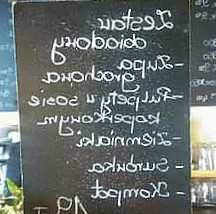 Zestaw
obiadowy
- Zupa
grochowa
- Pulpety w sosie
koperkowym
- Ziemniaki
- Surówka
- Kompot
19